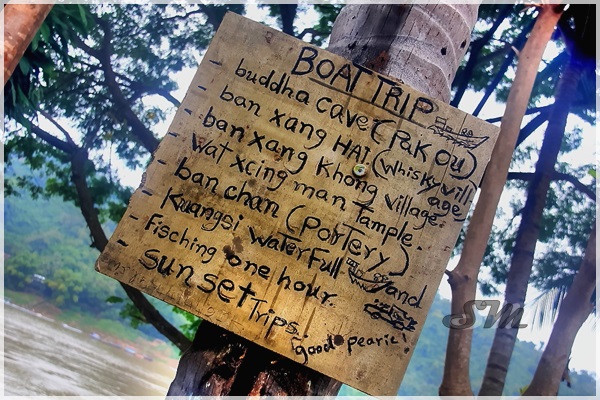 BOAT TRIP
- buddha cave (PAK OU)
- ban xang HAI (Whisky village
- ban xang Khong village.
- wat xcing man Tample.
- ban chan (PorTery)
- Kuangsi waterFull and
- Fisching one hour.
- sunset Trips.
good pearic!
SM